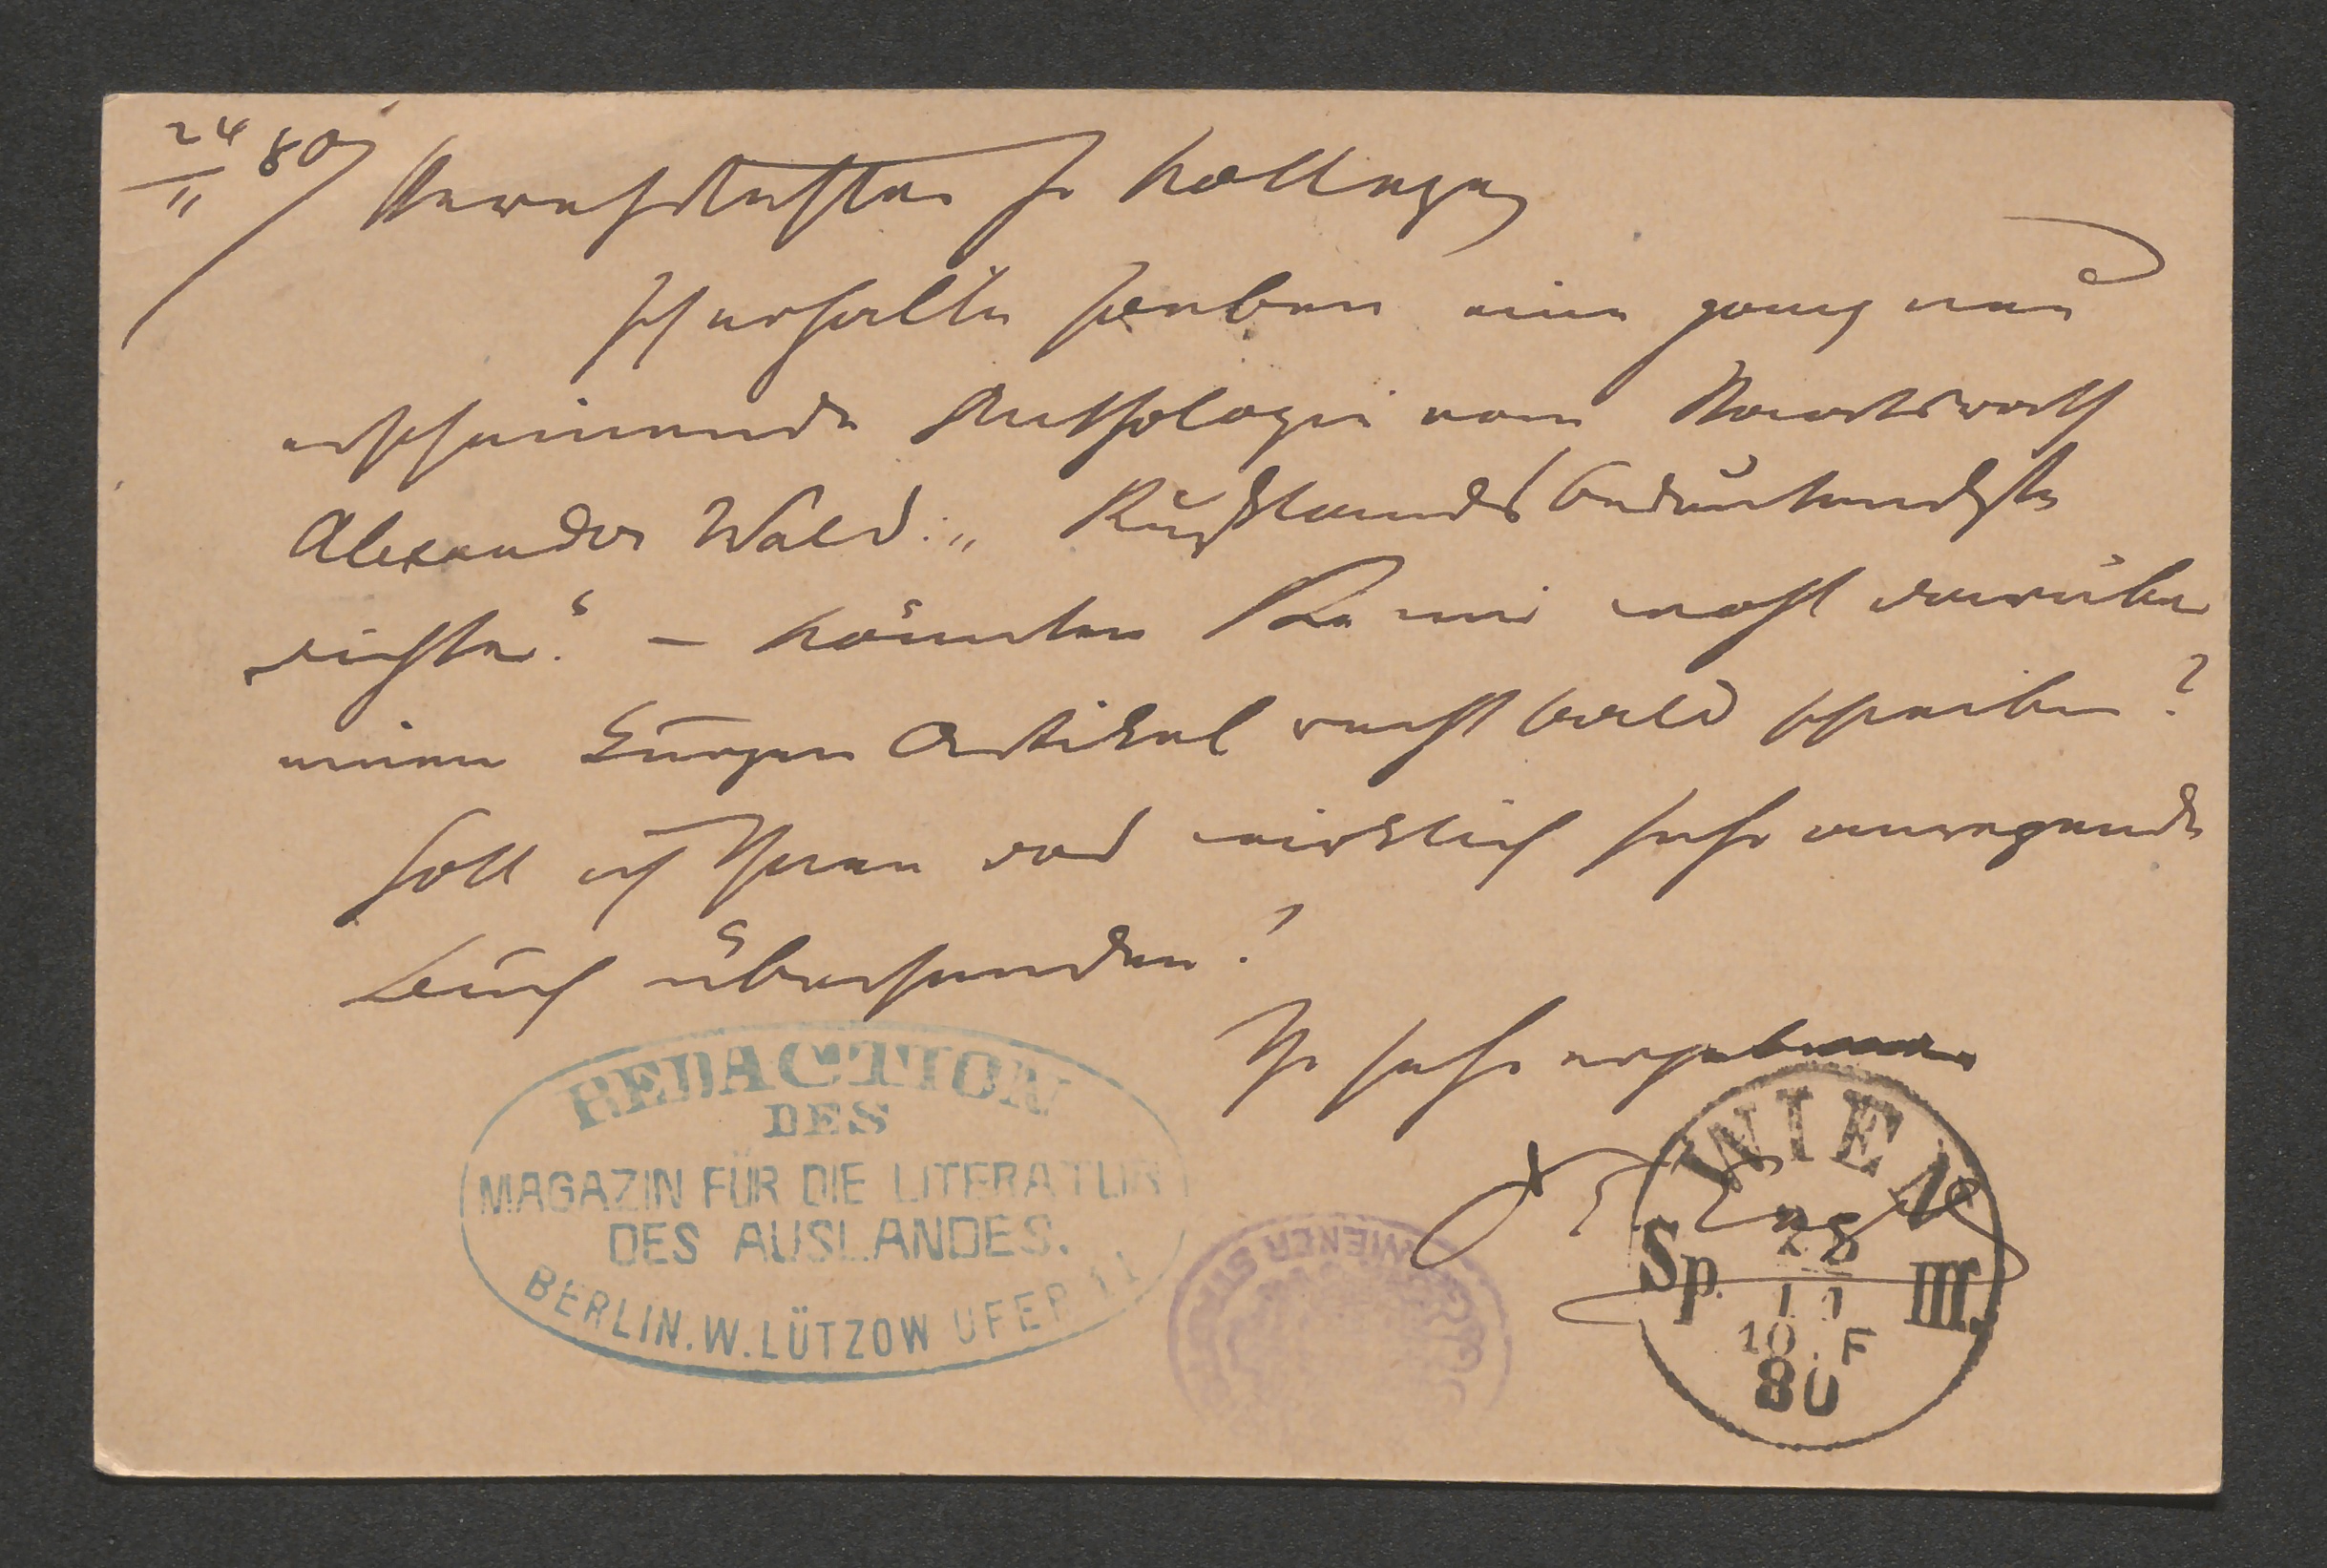 24/11 80
Verehrtester Hr Kollege,
Ich erhalte soeben eine ganz neu
erscheinende Anthologie von
Alexander Wald: „Rußlands bedeutendste
Dichter." – Könnten Sie mir wohl darüber
einen kurzen Artikel recht bald schreiben?
Soll ich Ihnen das wirklich sehr anregende
Buch übersenden?
Ihr sehr ergebener
REDACTION
DES
MAGAZIN FÜR DIE LITERATUR
DES AUSLANDES.
BERLIN. W. LÜTZOW UFER 11
WIENER
WIEN
Sp. III.
28
11
10. F
80